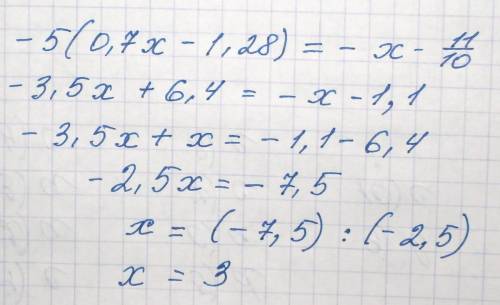 -5(0,7x - 1,28) = - x - 11/10
-3,5x + 6,4 = - x - 1,1
- 3,5x + x = - 1,1 - 6,4
- 2,5x = - 7,5
x = (-7,5) : (-2,5)
x = 3